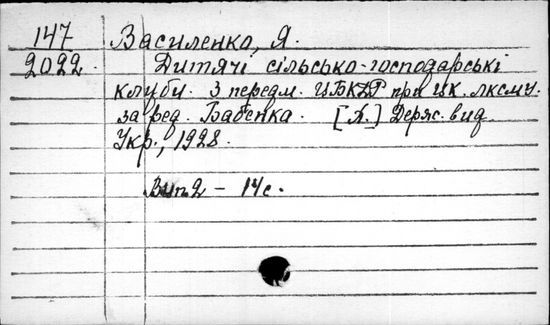 147 Василенко, Я.
2022. Дитячі сільсько-господарські
клуби. З передм. ЦБКДР при ЦК. ЛКСМУ.
за ред. Бабенка. [Х.] Держ. вид.
Укр., 1928.
Вип. 2 — 14 с.